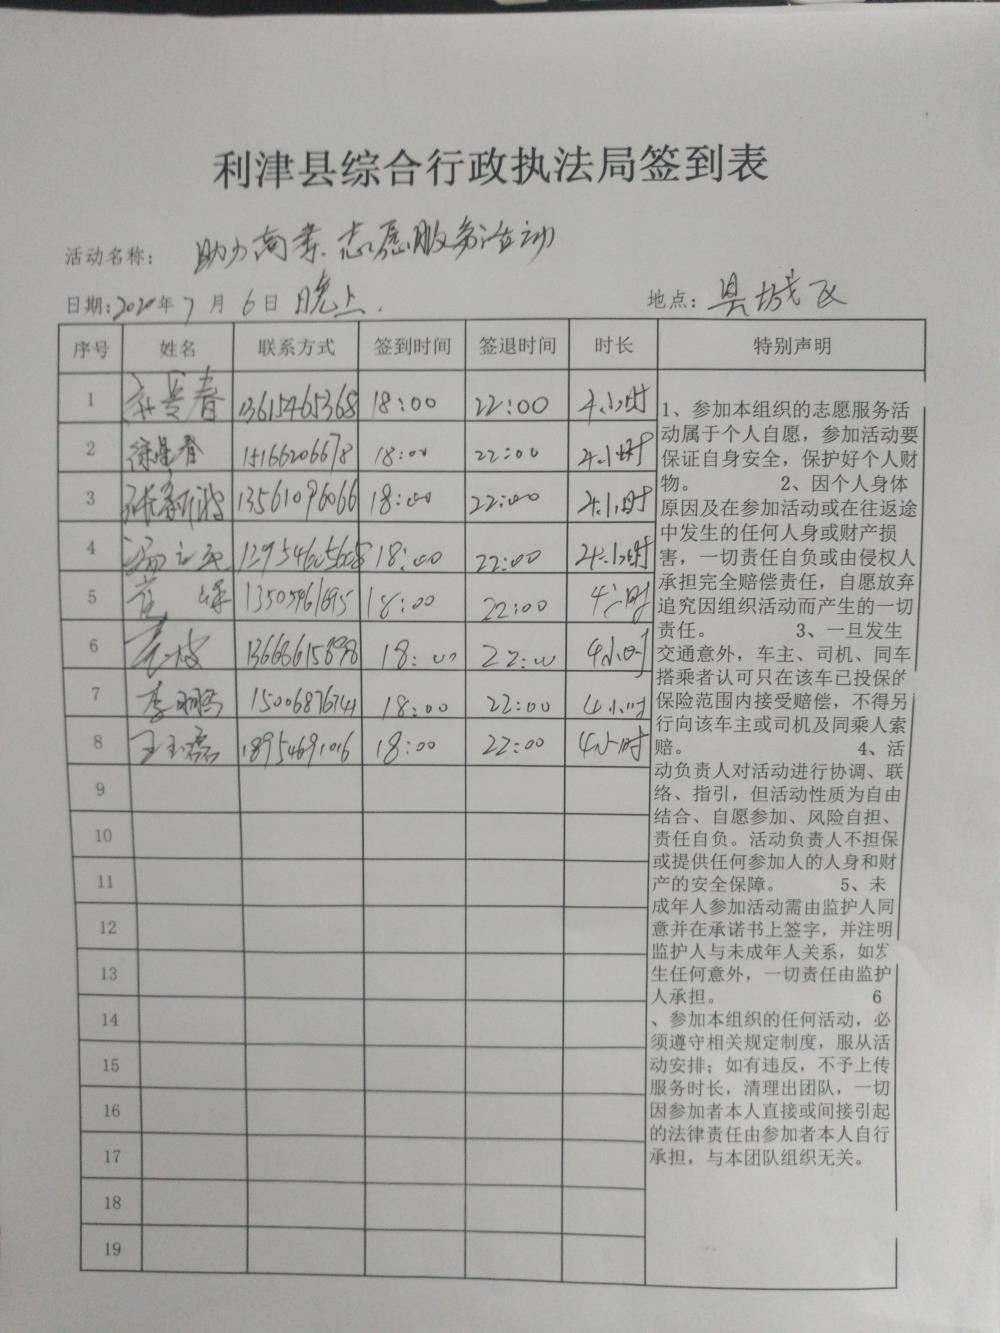 利津县综合行政执法局签到表
活动名称: 助力商业志愿服务活动
日期:2020年7月6日 晚上. 地点: 县城区
序号 姓名 联系方式 签到时间 签退时间 时长 特别声明
1 长春 13615465368 18:00 22:00 4小时
2 徐建春 15166206678 18:00 22:00 4小时
3 张新波 13561096066 18:00 22:00 4小时
4 18:00 22:00 4小时
5 18:00 22:00 4小时
6 18:00 22:00 4小时
7 李鹏 18:00 22:00 4小时
8 王玉磊 18954691016 18:00 22:00 4小时
9
10
11
12
13
14
15
16
17
18
19
1、参加本组织的志愿服务活
动属于个人自愿，参加活动要
保证自身安全，保护好个人财
物。 2、因个人身体
原因及在参加活动或在往返途
中发生的任何人身或财产损
害，一切责任自负或由侵权人
承担完全赔偿责任，自愿放弃
追究因组织活动而产生的一切
责任。 3、一旦发生
交通意外，车主、司机、同车
搭乘者认可只在该车已投保的
保险范围内接受赔偿，不得另
行向该车主或司机及同乘人索
赔。 4、活
动负责人对活动进行协调、联
络、指引，但活动性质为自由
结合、自愿参加、风险自担、
责任自负。活动负责人不担保
或提供任何参加人的人身和财
产的安全保障。 5、未
成年人参加活动需由监护人同
意并在承诺书上签字，并注明
监护人与未成年人关系，如发
生任何意外，一切责任由监护
人承担。 6
、参加本组织的任何活动，必
须遵守相关规定制度，服从活
动安排；如有违反，不予上传
服务时长，清理出团队，一切
因参加者本人直接或间接引起
的法律责任由参加者本人自行
承担，与本团队组织无关。